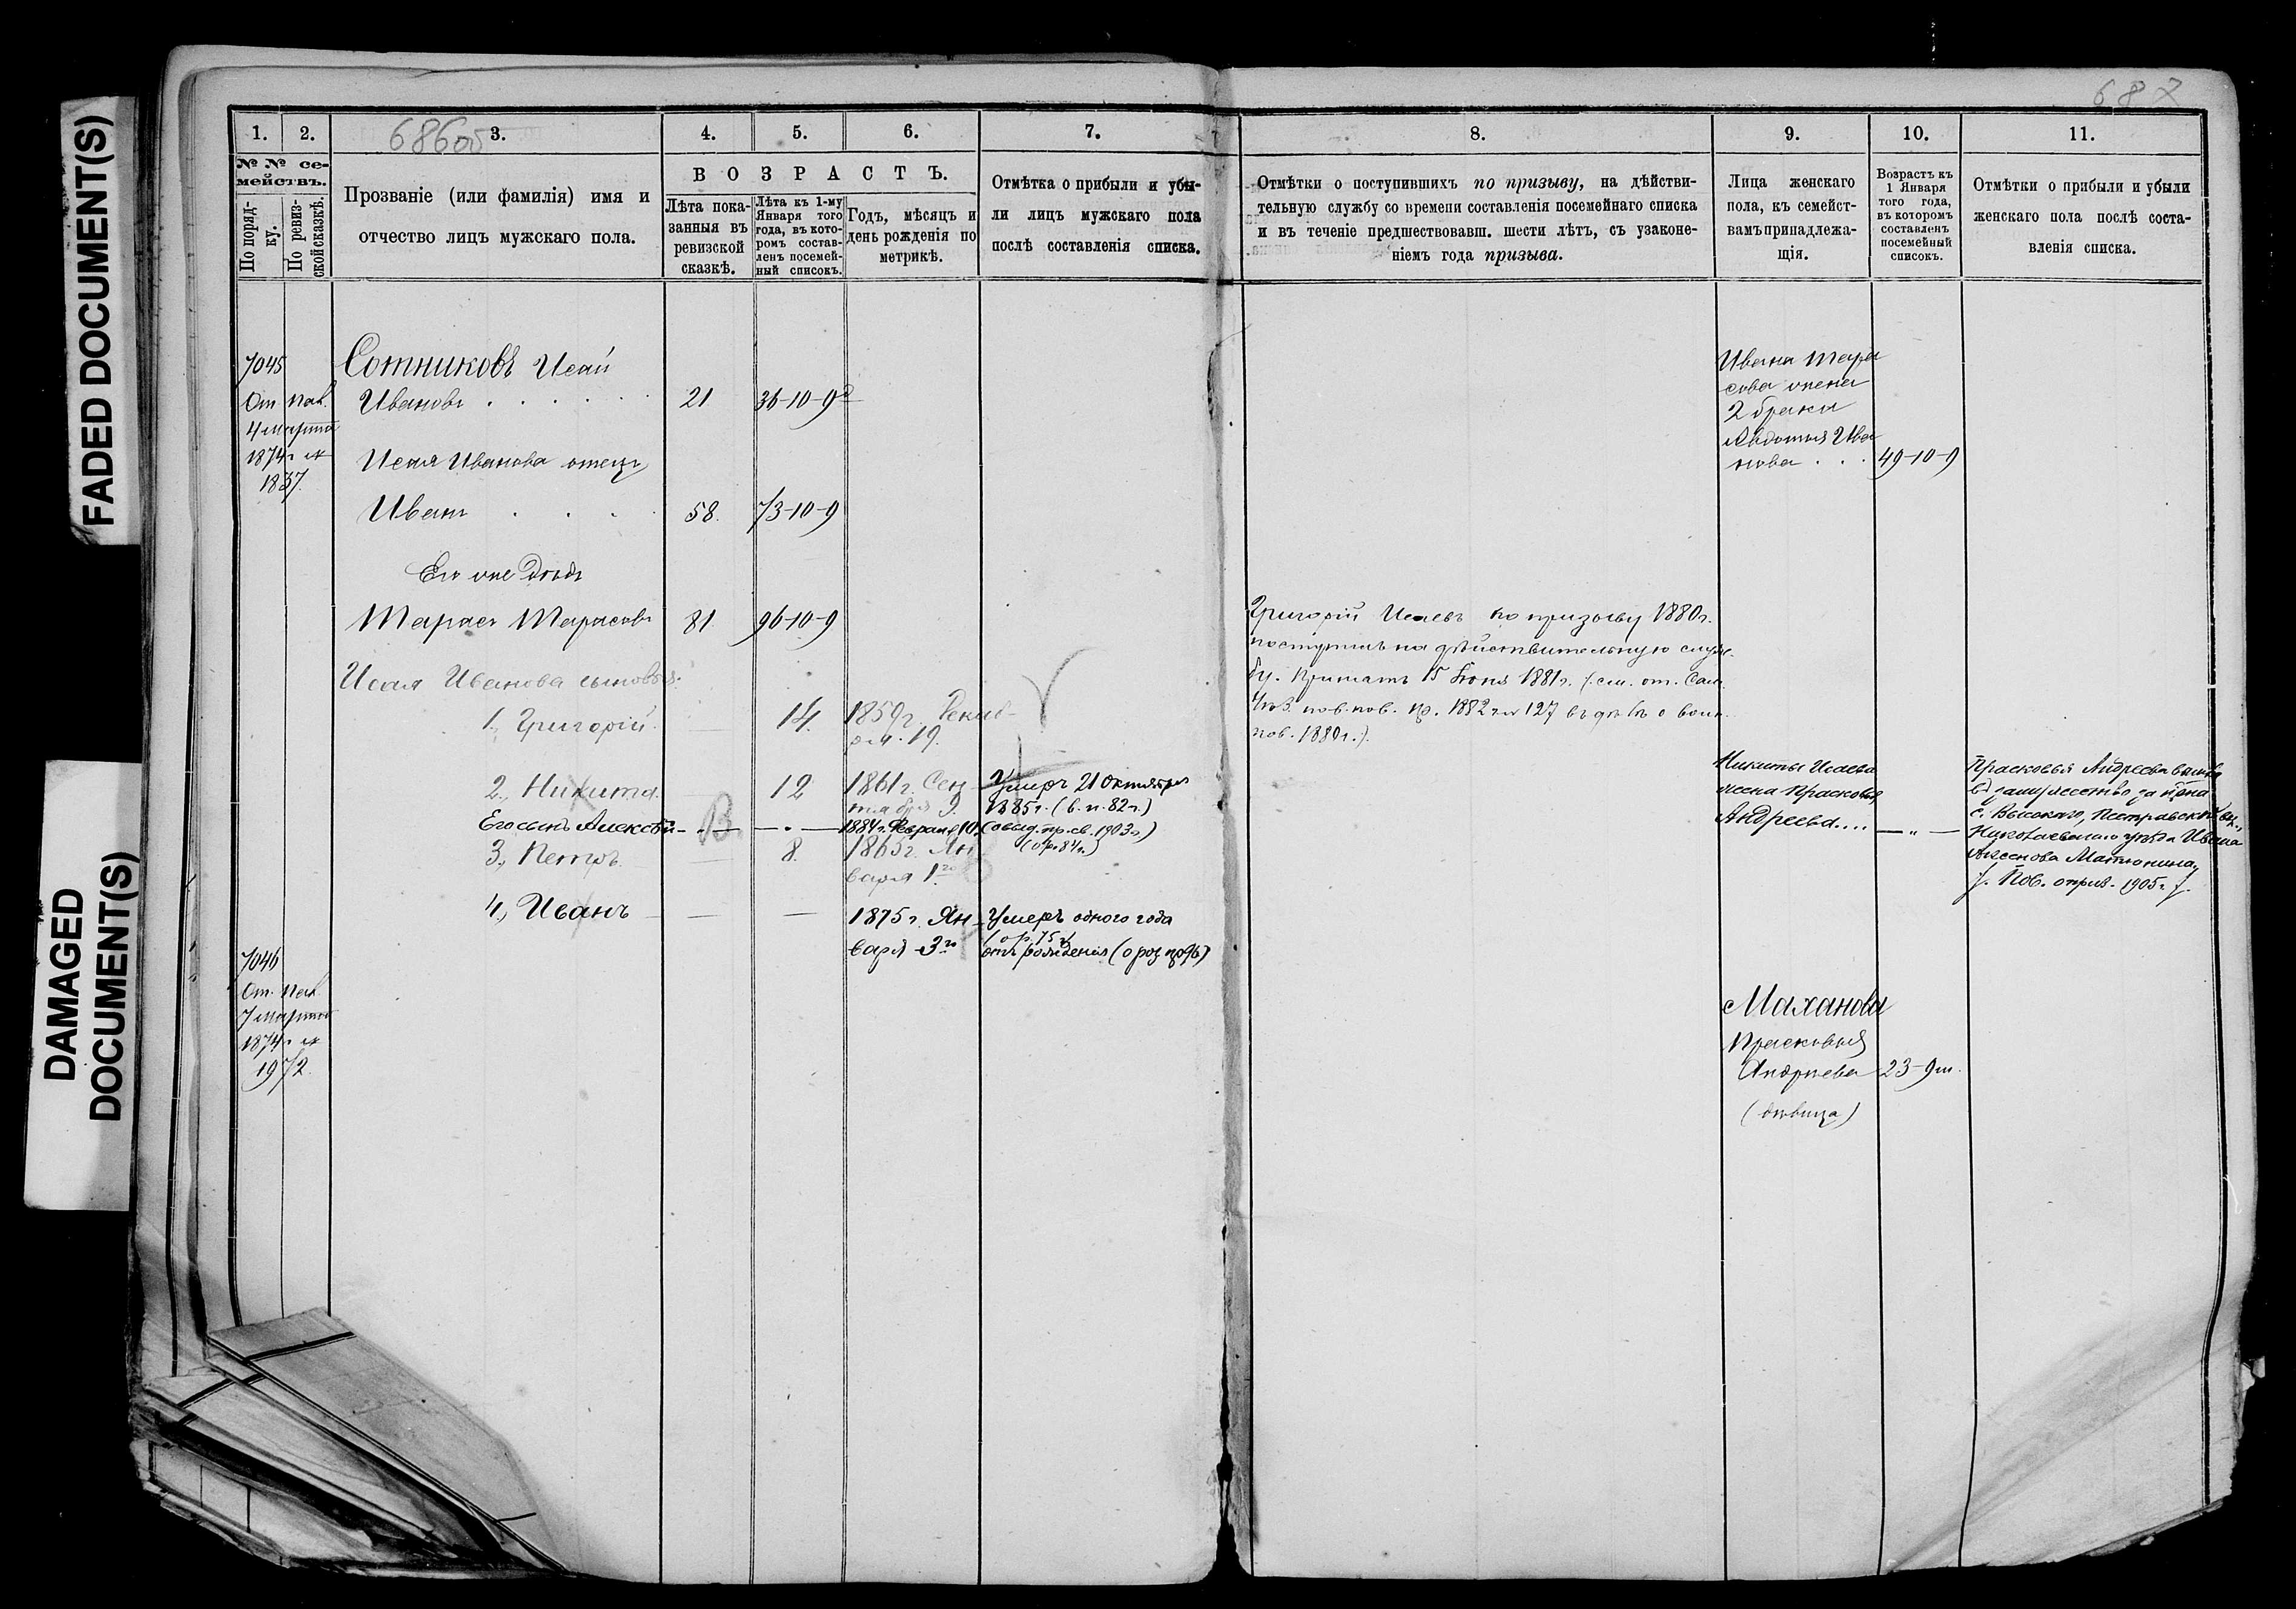 FADED DOCUMENT(S)
DAMAGED
DOCUMENT(S)
687
686об
1.
2.
3.
4.
5.
6.
7.
8.
9.
10.
11.
№ № се-
мействъ.
По поряд-
ку.
По ревиз-
ской сказкѣ.
Прозваніе (или фамилія) имя и
отчество лицъ мужскаго пола.
ВОЗРАСТЪ.
Лѣта пока-
занныя въ
ревизской
сказкѣ.
Лѣта къ 1-му
Января того
года, въ кото-
ромъ состав-
ленъ посемей-
ный списокъ.
Годъ, мѣсяцъ и
день рожденія по
метрикѣ.
Отмѣтка о прибыли и убы-
ли лицъ мужскаго пола
послѣ составленія списка.
Отмѣтки о поступившихъ по призыву, на дѣйстви-
тельную службу со времени составленія посемейнаго списка
и въ теченіе предшествовавш. шести лѣтъ, съ узаконе-
ніемъ года призыва.
Лица женскаго
пола, къ семейст-
вамъ принадлежа-
щія.
Возрастъ къ
1 Января
того года,
въ которомъ
составленъ
посемейный
списокъ.
Отмѣтки о прибыли и убыли
женскаго пола послѣ соста-
вленія списка.
7045
От. пов.
4 марта
1874 г №
1837.
Сотниковъ Исай
Ивановъ
21
36-10-9
Исая Иванова отецъ
Иванъ
58.
73-10-9
Его же дѣдъ
Тарасъ Тарасовъ
81
96-10-9
Исая Иванова сыновья:
1, Григорій
14.
1859 г. Декаб-
19.
2, Никита.
12
1861 г. Сен-
тября 9.
Умеръ 21 Октября
1885 г. (в. п. 82 г.)
Его сынъ Алексѣй
В.
1884 г. Февраля 10.
(овыд. пр. св. 1903 г)
(о р. 84 г.)
3, Петръ
8.
1865 г. Ян-
варя 1го
4, Иванъ
1875 г. Ян-
варя 3го
Умеръ одного года
(о р. 75 г)
отъ рожденія
Григорій Исаевъ по призыву 1880 г.
поступилъ на дѣйствительную служ-
бу. Принятъ 15 1881 г. (. см. от. Сам.
пов. 1882 г № 127 въ дѣлѣ о воин.
пов. 1880 г.).
Ивана Тара
сова жена
2 брака
Авдотья Ива
нова
49-10-9
Никиты Исаева
жена Прасковья
Андреева....
Прасковья Андреева вышла
въ замужество за
с. Высокаго, Пестравской вол.,
Николаевскаго уѣзда Ивана
Аксенова Матюнина,
1905 г.
7046
От. пов.
7 марта
1874 г №
1972.
Маханова
Прасковья
Андреева
23-9 м.
(дѣвица)